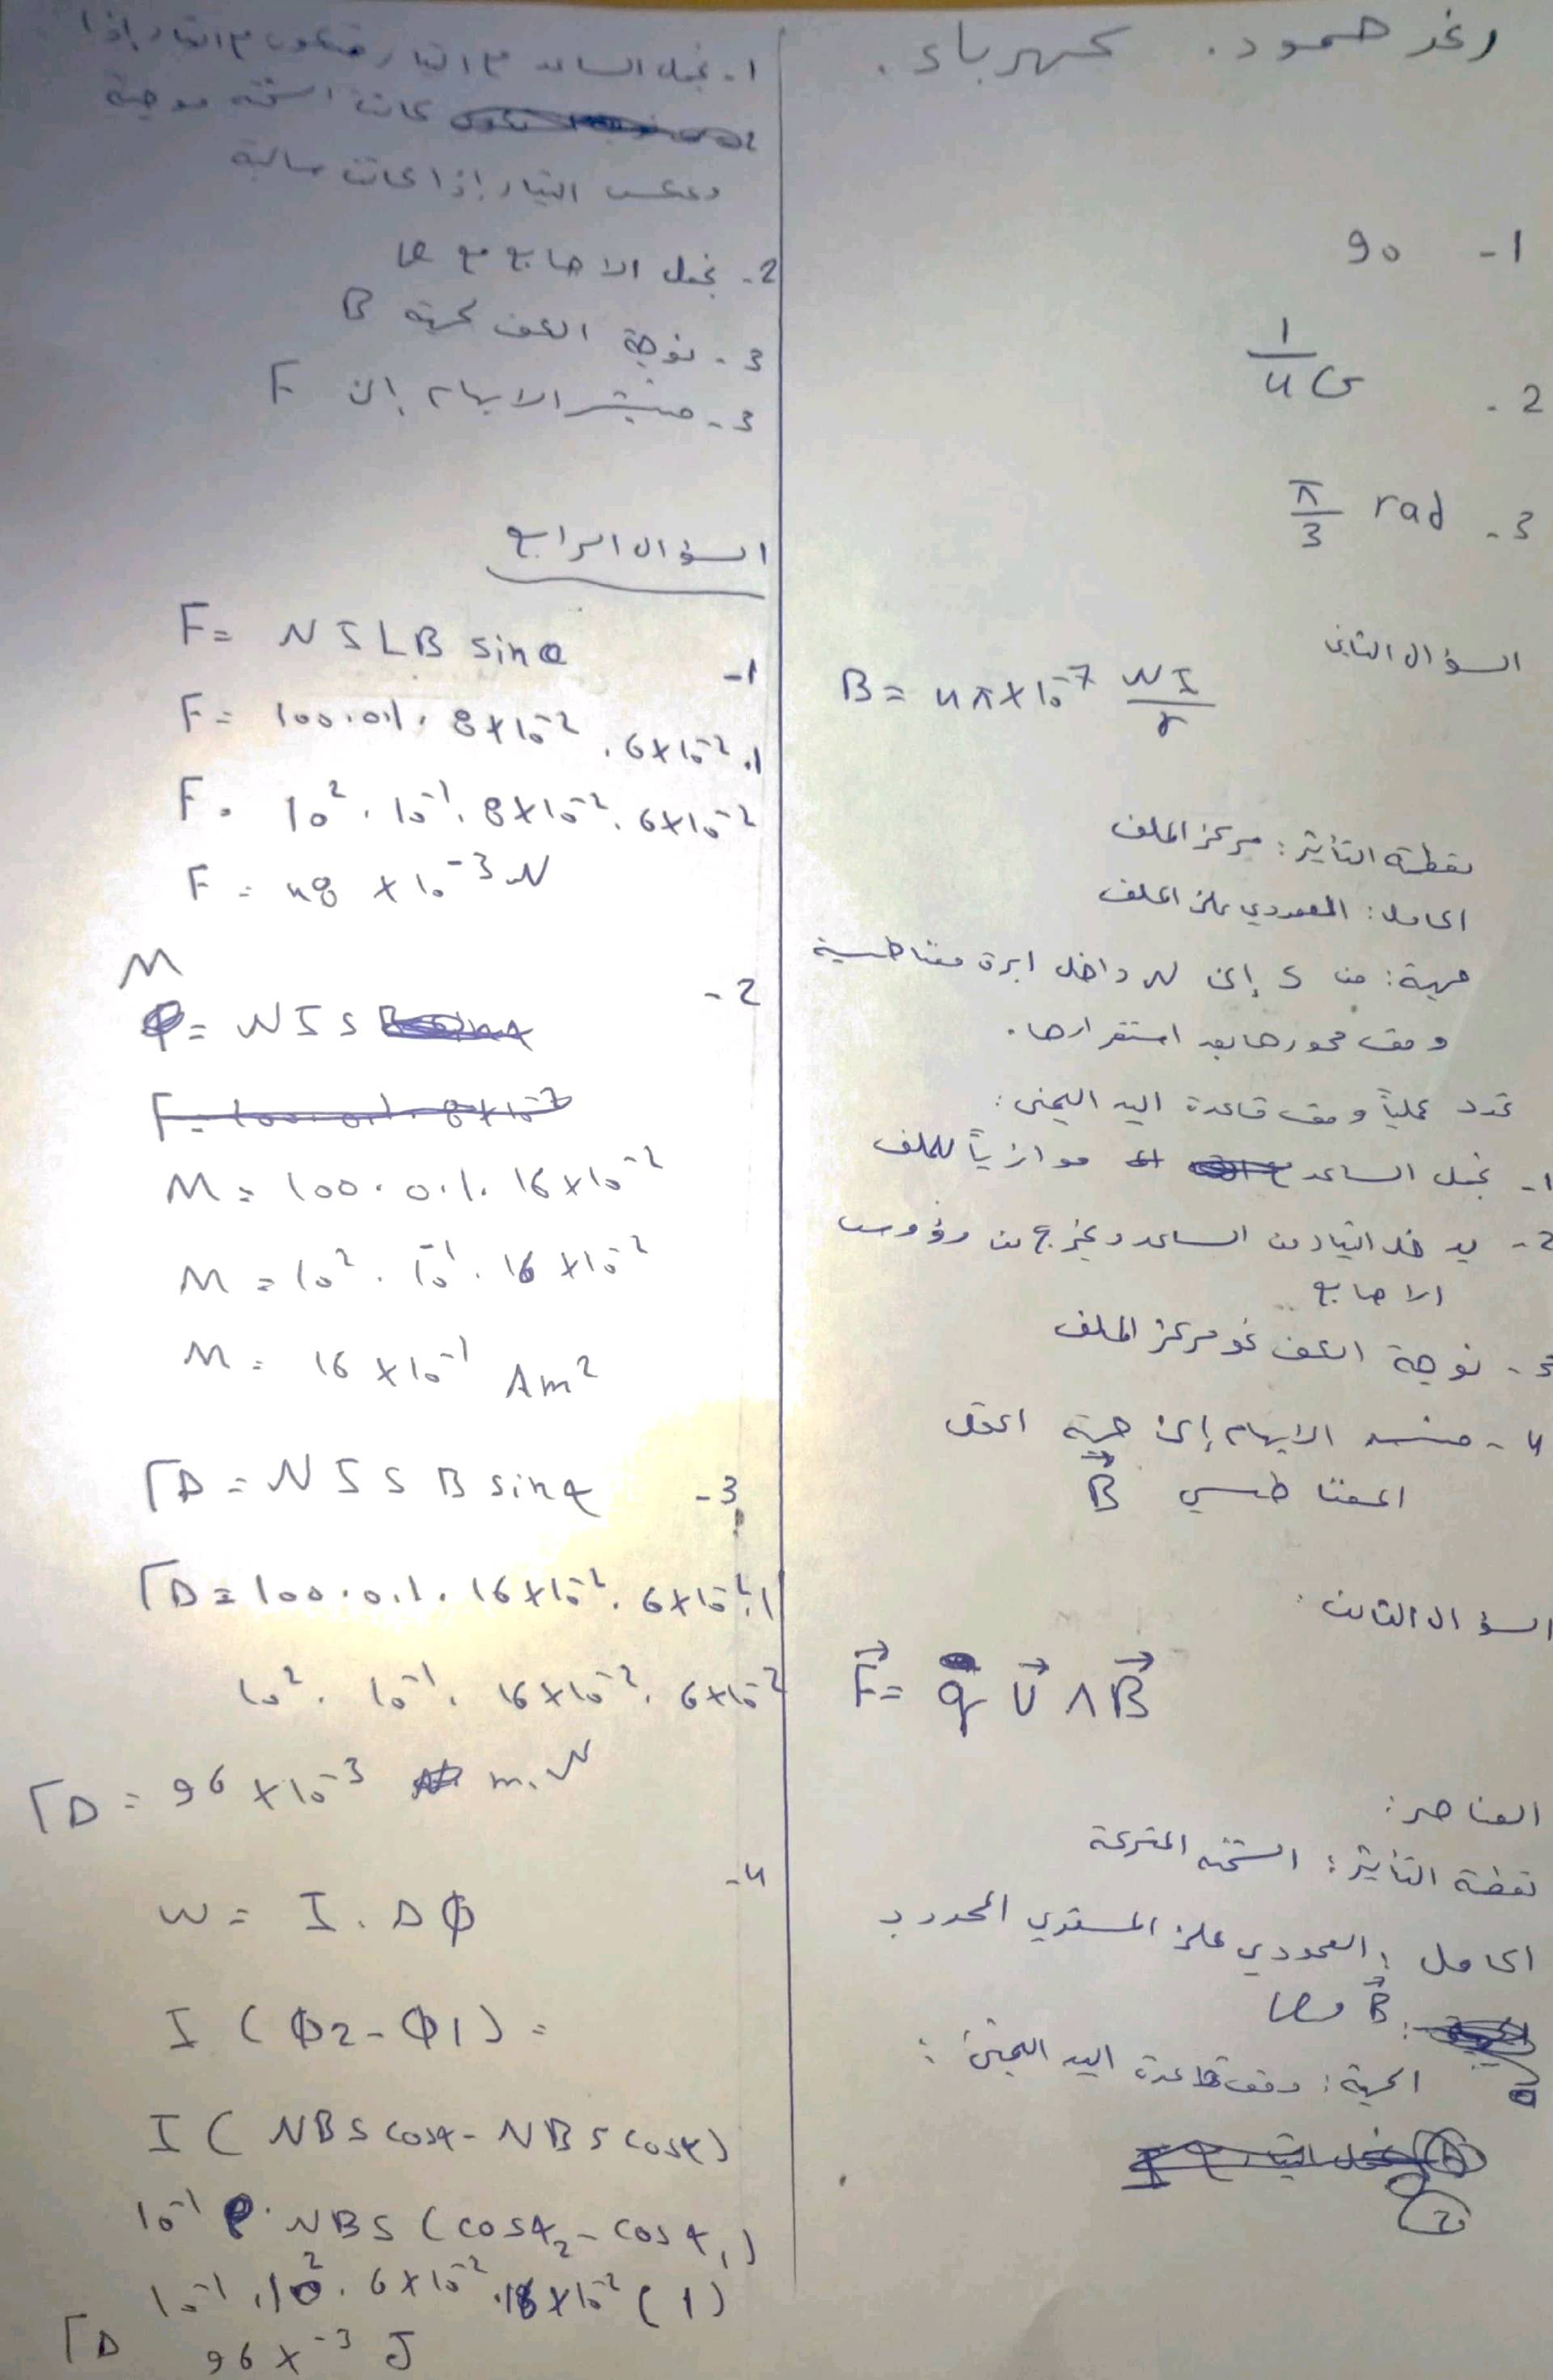 رغد حمود. كهرباء.
1- 90
2- 1/4 G
3- π/3 rad
السؤال الثاني
B = 4π×10^-7 NI/r
نقطة التأثير: مركز الملف
الحامل: العمودي على الملف
جهة: من S إلى N داخل ابرة مغناطسية
وفق محورها بعد استقرارها.
تحدد عملياً وفق قاعدة اليد اليمنى:
1- نجعل الساعد موازياً للملف
2- يدخل التيار من الساعد ويخرج من رؤوس
الاصابع
3- نوجة الكف نحو مركز الملف
4- فيشير الابهام إلى جهة الحقل
المغناطسي B⃗
السؤال الثالث:
F⃗ = q v⃗ ∧ B⃗
العناصر:
نقطة التأثير: الشحنه المتحركة
الحامل: العمودي على المستوي المحدد بـ
B⃗ و v
الجهة: وفق قاعدة اليد اليمنى:
1- نجعل الساعد مع التيار فيكون مع التيار إذا
كانت الشحنه موجبة
وعكس التيار إذا كانت سالبة
2- نجعل الاصابع مع v
3- نوجة الكف لجهة B
3- فيشير الابهام إلى F
السؤال الرابع
1- F= NILB sinα
F= 100.0.1. 8×10^-2 . 6×10^-2 .1
F= 10^2 . 10^-1 . 8×10^-2 . 6×10^-2
F= 48 ×10^-3 N
2- M = NIS
M= 100. 0.1. 16×10^-2
M = 10^2 . 10^-1 . 16×10^-2
M= 16×10^-1 Am^2
3- ΓΔ = NISB sinα
ΓΔ = 100.0.1. 16×10^-2 . 6×10^-2 .1
10^2 . 10^-1 . 16×10^-2 . 6×10^-2
ΓΔ = 96×10^-3 m.N
4- W= I. ΔΦ
I (Φ2-Φ1) =
I ( NBS cosα - NBS cosα)
10^-1 . NBS (cosα2 - cosα1)
10^-1 .10^2 . 6×10^-2 .16×10^-2 (1)
ΓΔ 96×^-3 J